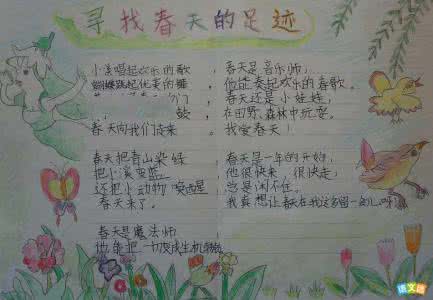 寻找春天的足迹
小溪唱起欢乐的歌，
蝴蝶跳起优美的舞
们
鼓
春天向我们走来
春天把青山染绿
把小溪变蓝
还把小动物唤醒
春天来了。
春天是魔法师，
他能把一切变成生机勃勃
春天是音乐师，
他能奏起欢乐的春歌。
春天还是小娃娃，
在田野、森林中玩耍。
我爱春天！
春天是一年的开始，
他很快来，很快走，
总是闲不住。
我真想让春天在我这多留一会儿啊！
语文迷